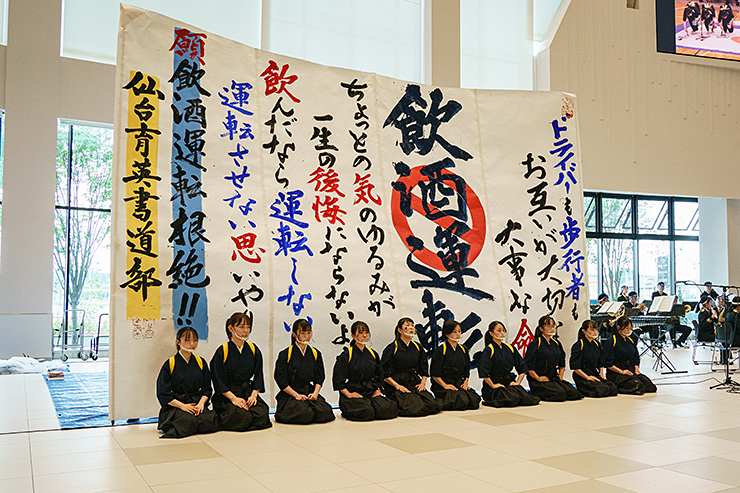 ドライバーも歩行者も
お互いが大切な
大事な命
飲酒運転
ちょっとの気のゆるみが
一生の後悔にならないよ
飲んだなら運転しない
運転させない思いや
願飲酒運転根絶!!
仙台育英書道部